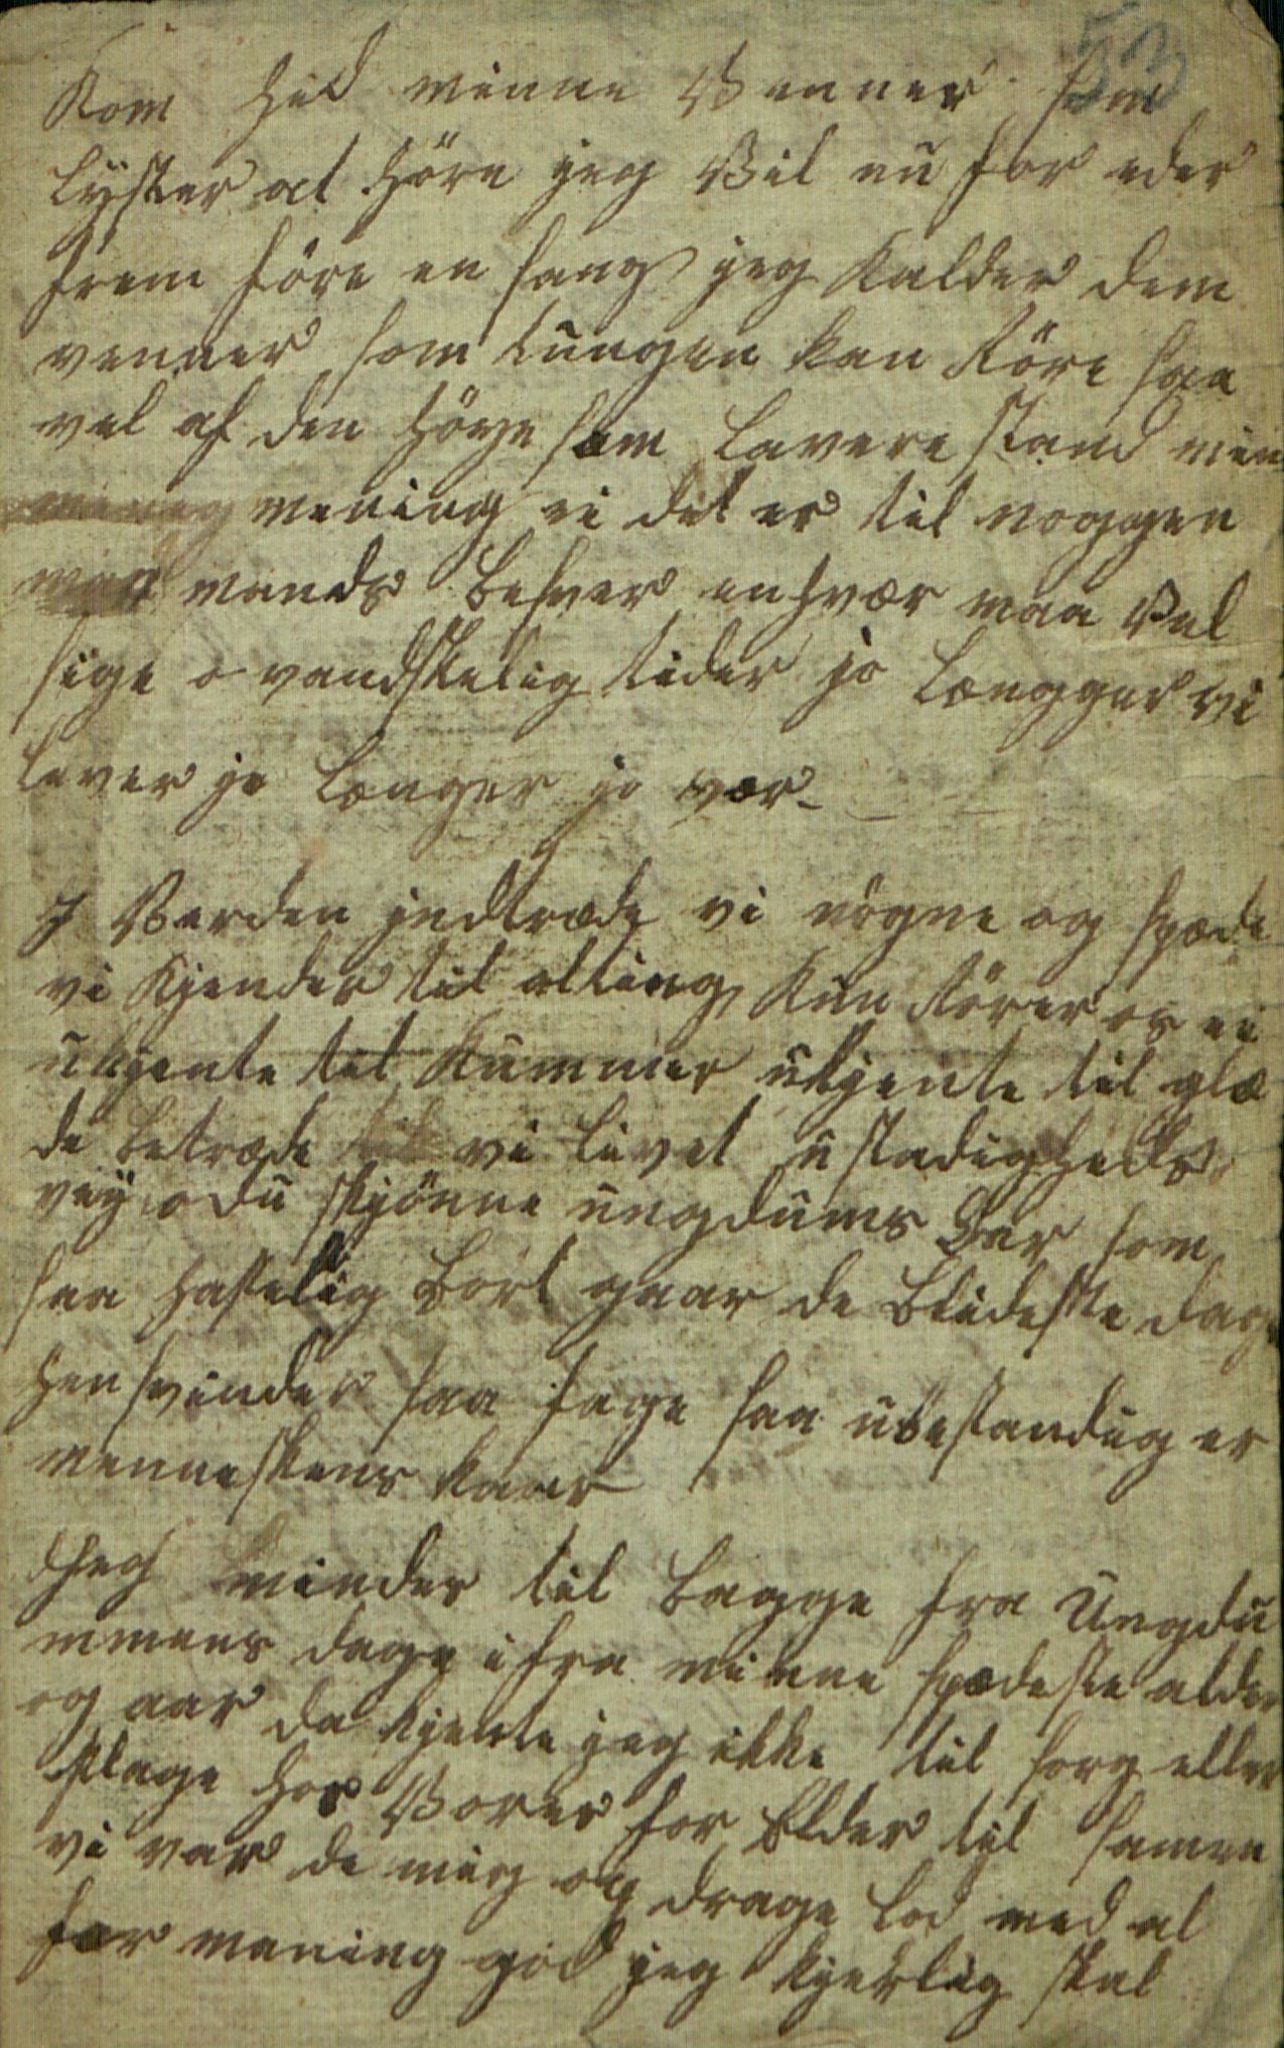 53
Kom hid minne Venner som
Lyster at höre jeg Vil nu for eder
frem före en sang jeg Kalder dem
venner som tungen kan röre saa
vel af den höye som Lavere stand min
mening ei det er til noggen
mands besver enhvær maa Vel
sige o vandskelig tider jo Længger vi
Lever jo Længer jo vær
I Verden indtræde vi nögne og spæde
vi Kjender til alting Kun rörer os ei
ukjente til Kummer ukjente til glæ
de betræde vi Livet ustadigheds
vey o du skjönne ungdums Vaar som
saa hastelig bort gaar de blideste dage
hen svinder saa fage saa ubestandig er
menneskens kaar
Jeg minder til bagge fra Ungdu
mmens dage ifra minne spædeste alder
og aar da kjente jeg ikke til sorg eller
klage hos Vores for Elder til samen
vi var de mig og drage Lod med al
for maning god jeg kjerlig skal